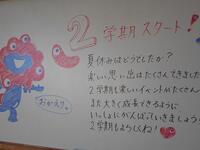 2学期スタート!
夏休みはどうでしたか?
楽しい思い出はたくさんできました
2学期も楽しいイベントがたくさん
また大きく成長できるように
いっしょにがんばっていきましょう
2学期もよろしくね!
おかえり。